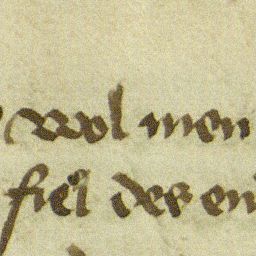 wol men
fiel der en